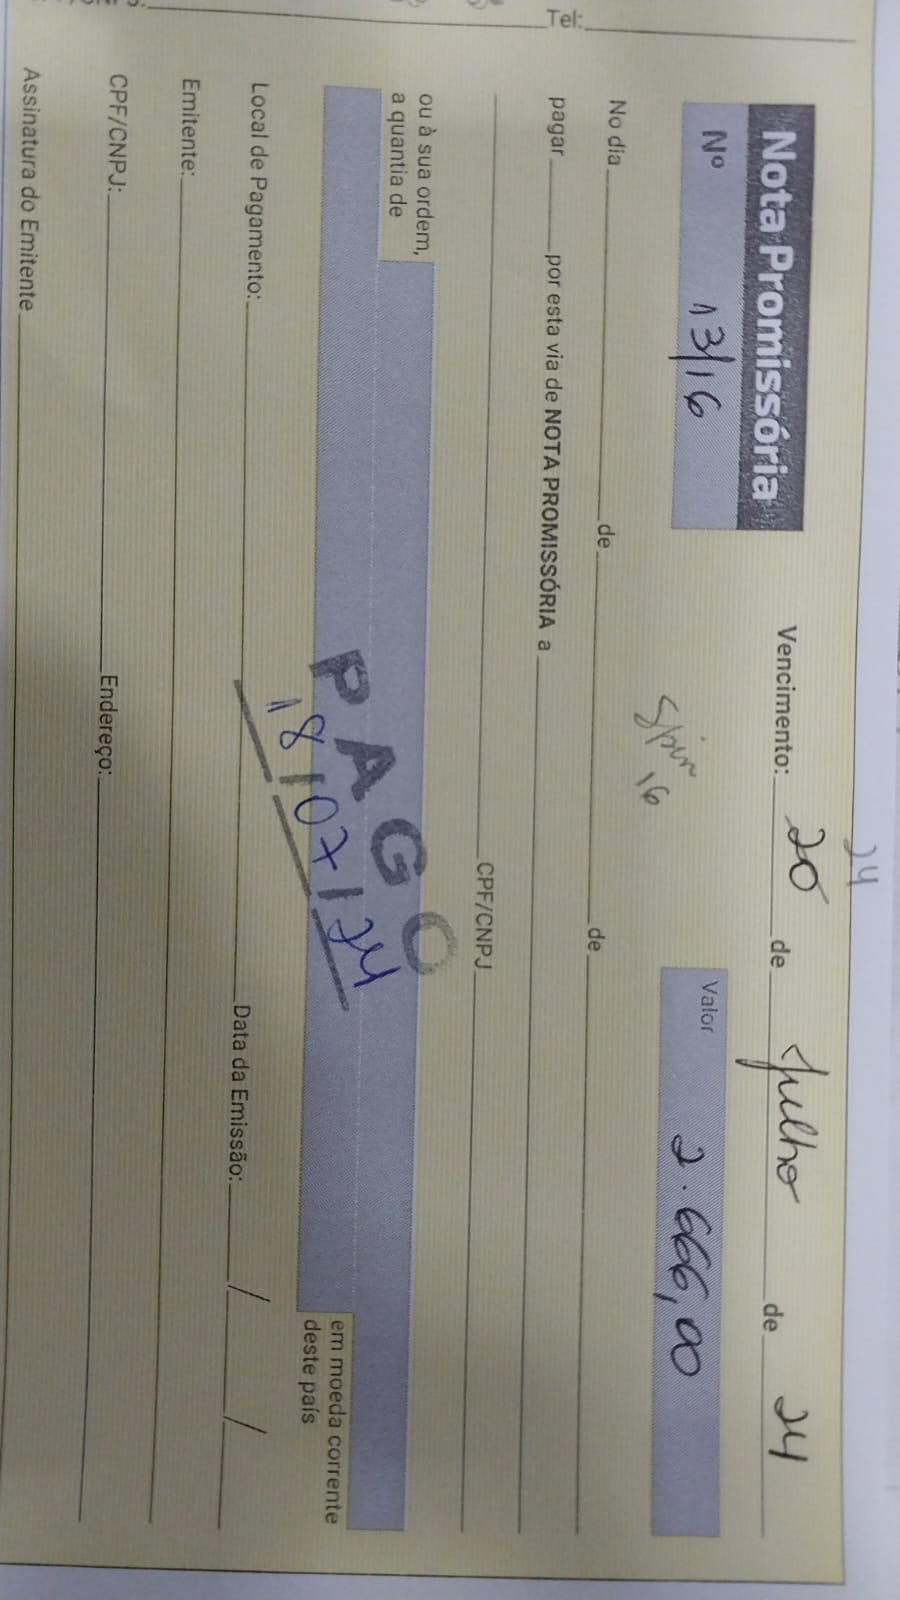 24
Nota Promissória
Vencimento: 20 de julho de 24
Nº 13/16
Valor 2.666,00
Spin
16
No dia de de
pagar por esta via de NOTA PROMISSÓRIA a
CPF/CNPJ
ou à sua ordem,
a quantia de
em moeda corrente
deste país
PAGO
18/07/24
Local de Pagamento: Data da Emissão: / /
Emitente:
CPF/CNPJ: Endereço:
Assinatura do Emitente
Tel: